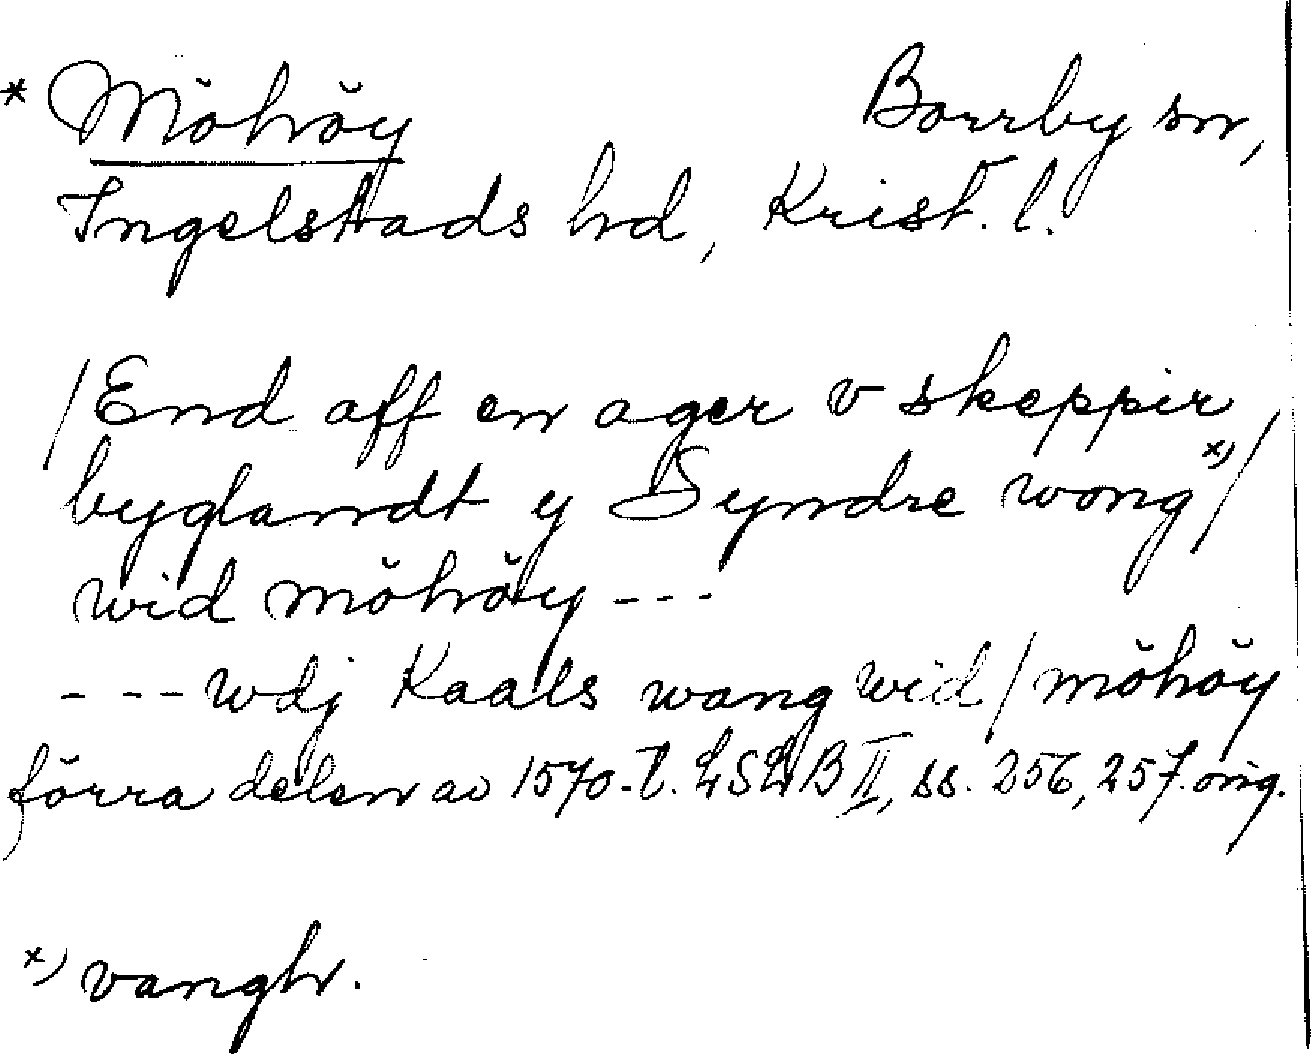 * Möhöy Borrby sn,
Ingelstads hd, Krist. l.
/End aff en ager v skeppir
byglandt y Syndre wong x)/
wid möhöy - - -
- - - wdj Kaals wang wid / möhöy
förra delen av 1570-t. LSLB II, ss. 256, 257. orig.
x) vanghr.